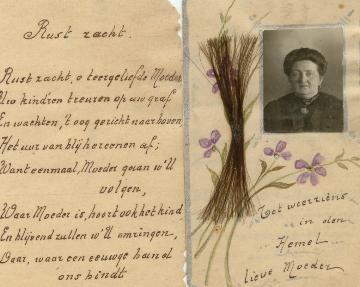 Rust zacht.
Rust zacht, o teergeliefde Moeder
Uw kindren treuren op uw graf
En wachten, 't oog gericht naar boven,
Het uur van blij hereenen af;
Want eenmaal, Moeder gaan w'U
volgen,
Waar Moeder is, hoort ook het kind
En blijvend zullen w'U omringen,
Daar, waar een eeuwge band
ons bindt
Tot weerziens
in den
Hemel
lieve Moeder